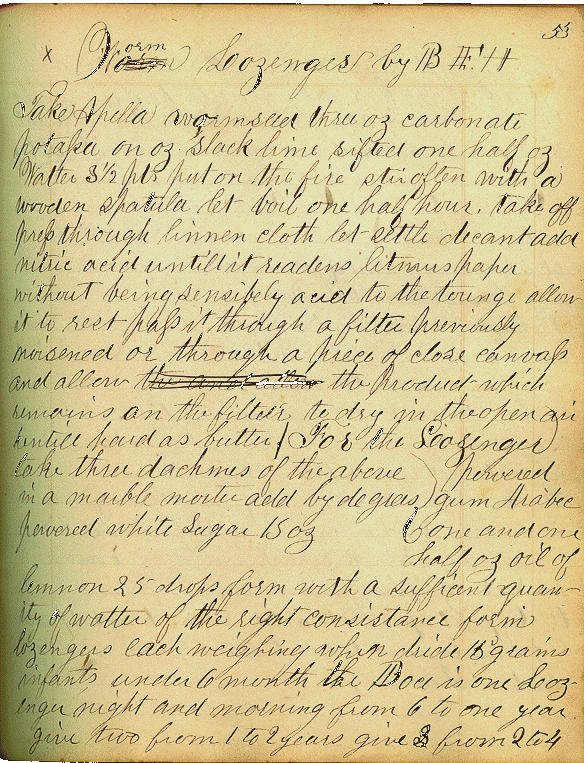 53
x Worm Loozenges by B F. H
Take Apella wormseed three oz carbonate
potassa on oz slack lime sifted one half oz
Watter 3½ pts put on the fire stir often with a
wooden spatula let boil one half hour. Take off
press through linnen cloth let settle decant add
nitric acid untill it readens litmus paper
without being sensibely acid to the tounge allow
it to rest pass it through a filter previously
moisened or through a piece of close canvass
and allow the product which
remains on the filter to dry in the open air
untill hard as butter / For the Loozenges
take three dachmes of the above ) powered
in a marble morter add by degrees ) gum Arabec
powered white Sugar 15 oz ( one and one
half oz oil of
lemnon 25 drops form with a sufficent quan-
ity of watter of the right consistance form
lozengers each weighing when dride 18 grains
infants under 6 month the Doce is one Looz-
enger night and morning from 6 to one year
give two from 1 to 2 years give 3 from 2 to 4